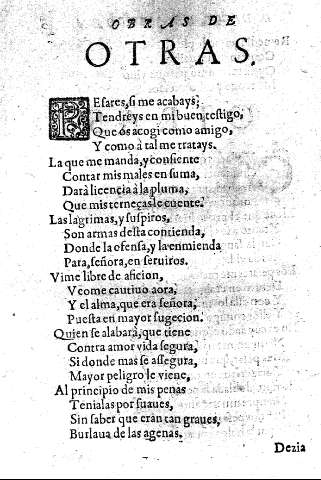 OBRAS DE
OTRAS.
PEsares, si me acabays,
Tendreys en mi buen testigo,
Que ós acogi como amigo,
Y como à tal me tratays.
La que me manda, y consiente
Contar mis males en suma,
Darà licencia à la pluma,
Que mis terneças le cuente.
Las lagrimas, y suspiros,
Son armas desta contienda,
Donde la ofensa, y la enmienda
Para, señora, en seruiros.
Vime libre de aficion,
Vcome cautiuo aora,
Y el alma, que era señora,
Puesta en mayor sugecion.
Quien se alabarà, que tiene
Contra amor vida segura,
Si donde mas se assegura,
Mayor peligro le viene,
Al principio de mis penas
Tenialas por suaues,
Sin saber que eran tan graues,
Burlaua de las agenas.
Dezia